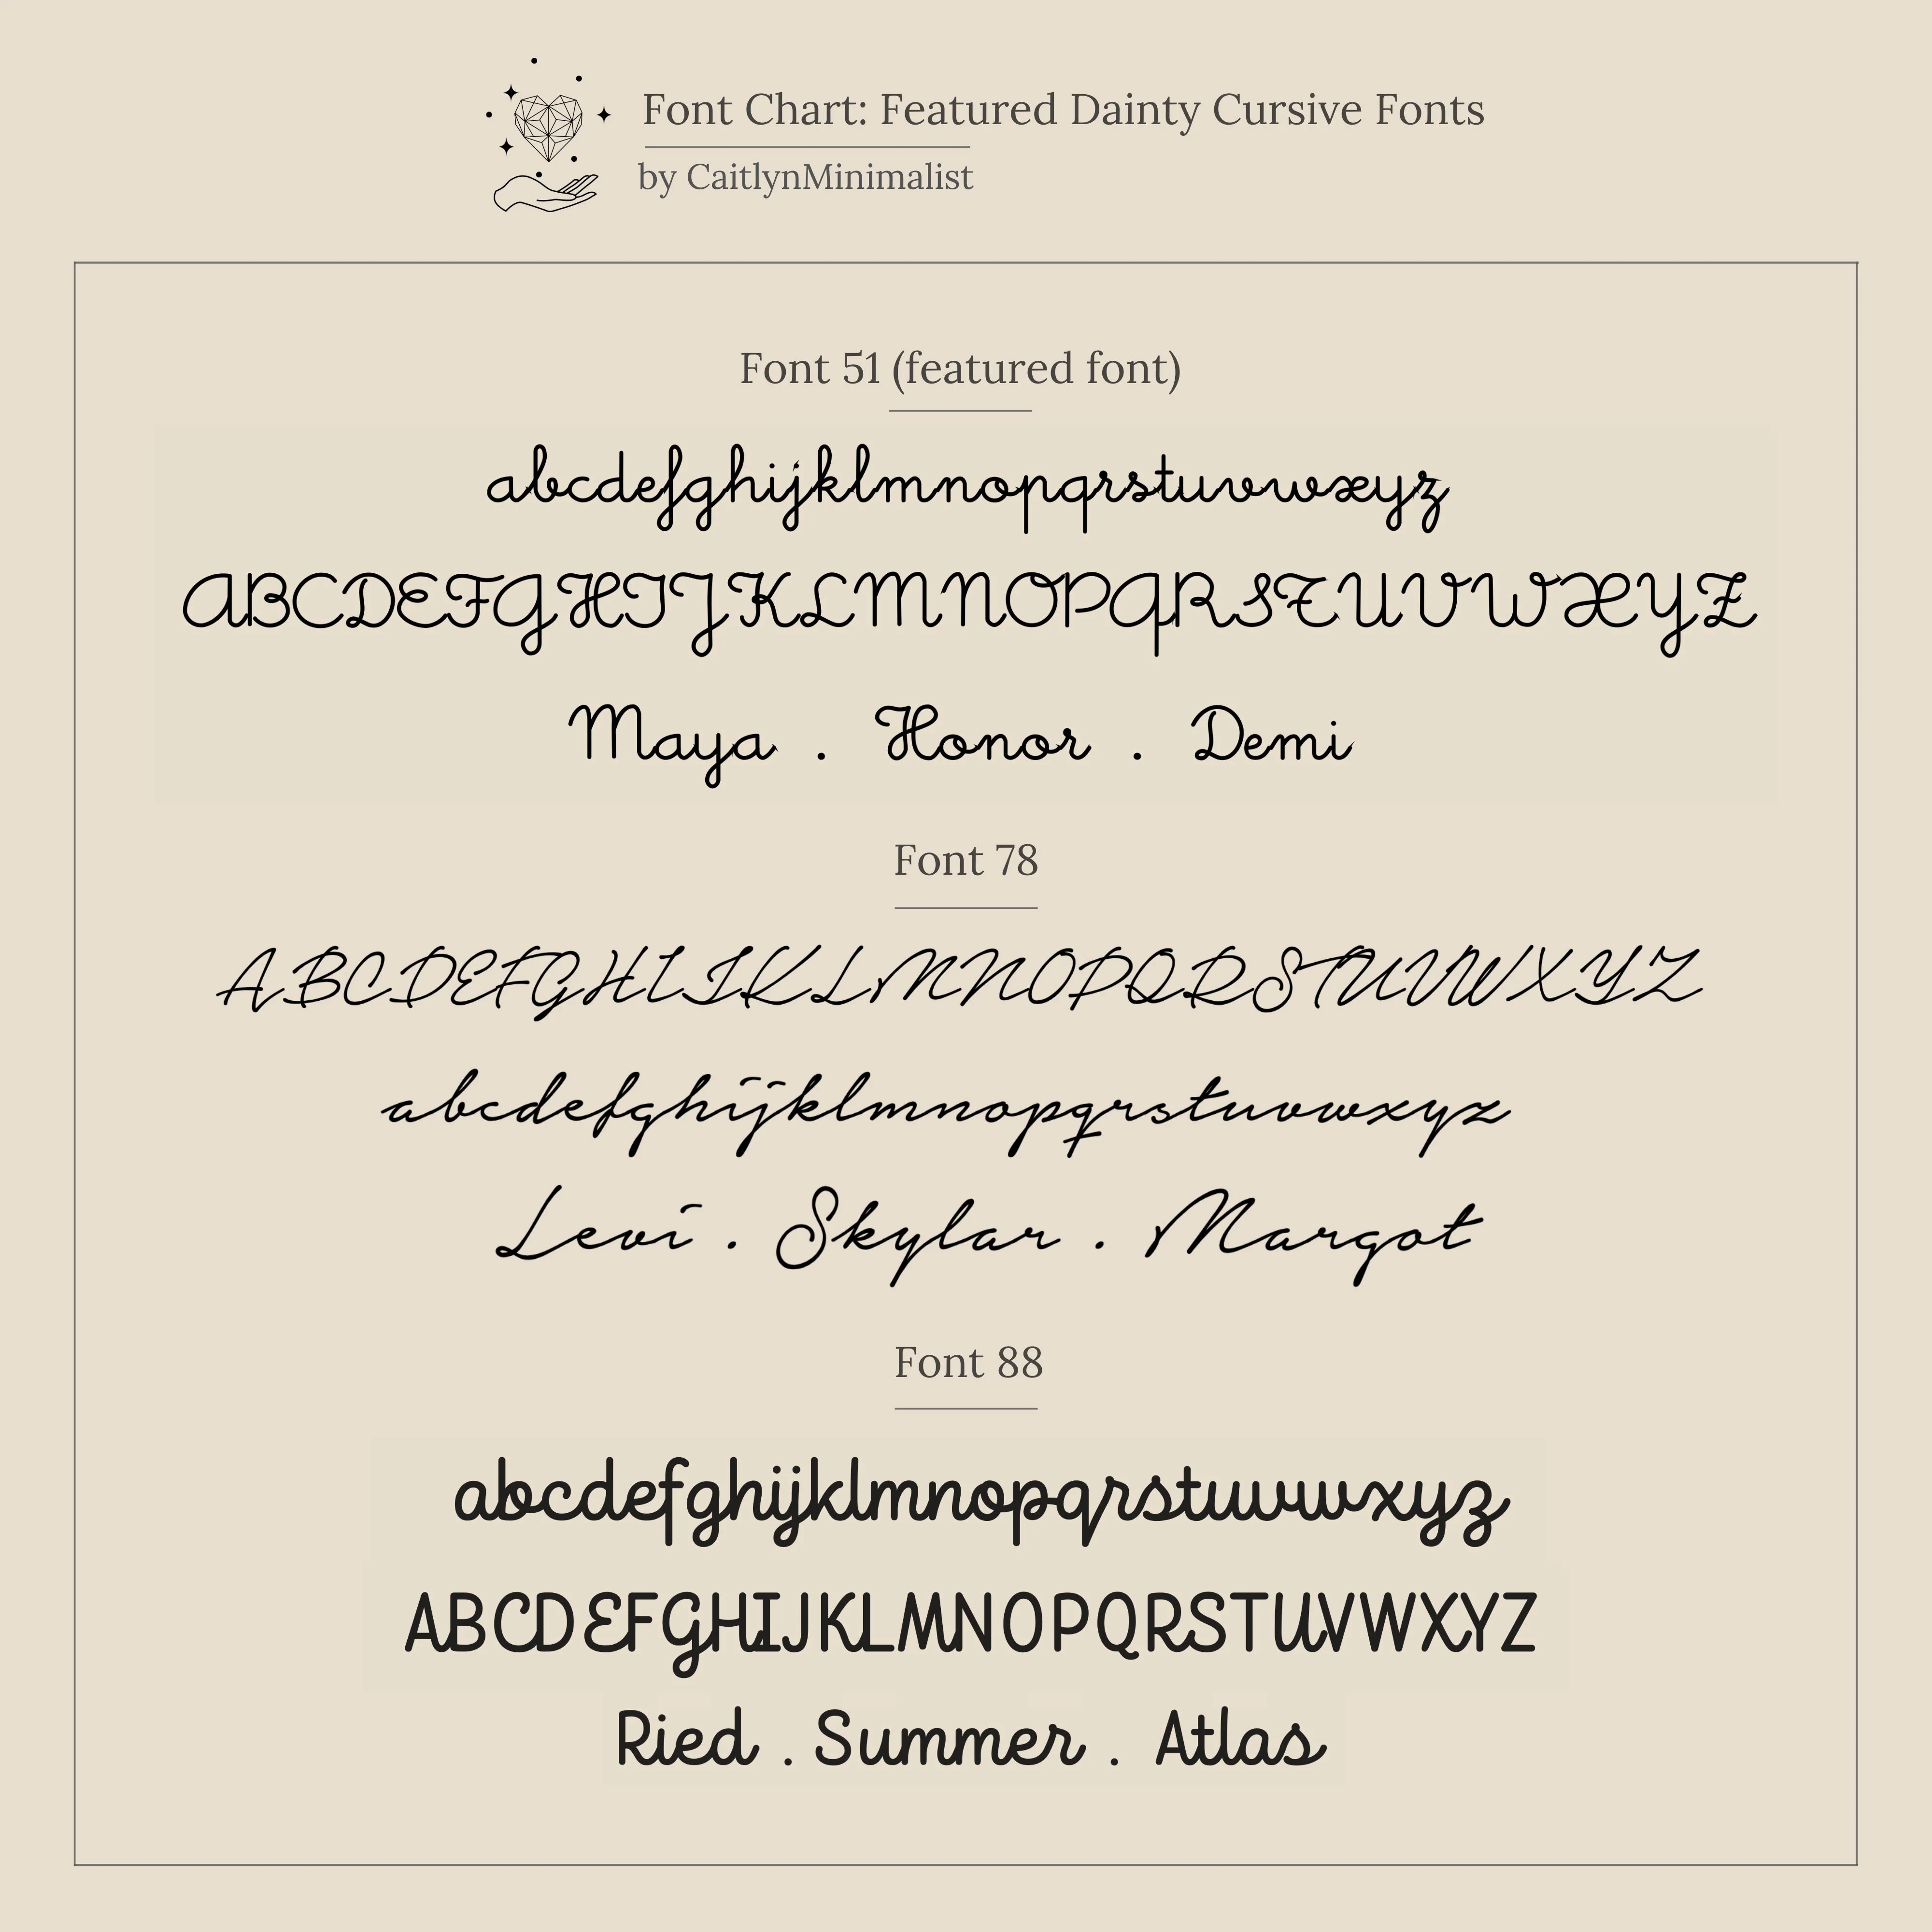 Font Chart: Featured Dainty Cursive Fonts
by CaitlynMinimalist
Font 51 (featured font)
abcdefghijklmnopqrstuvwxyz
ABCDEFGHIJKLMNOPQRSTUVWXYZ
Maya . Honor . Demi
Font 78
ABCDEFGHIJKLMNOPQRSTUVWXYZ
abcdefghijklmnopqrstuvwxyz
Levi . Skylar . Margot
Font 88
abcdefghijklmnopqrstuvwxyz
ABCDEFGHIJKLMNOPQRSTUVWXYZ
Ried . Summer . Atlas